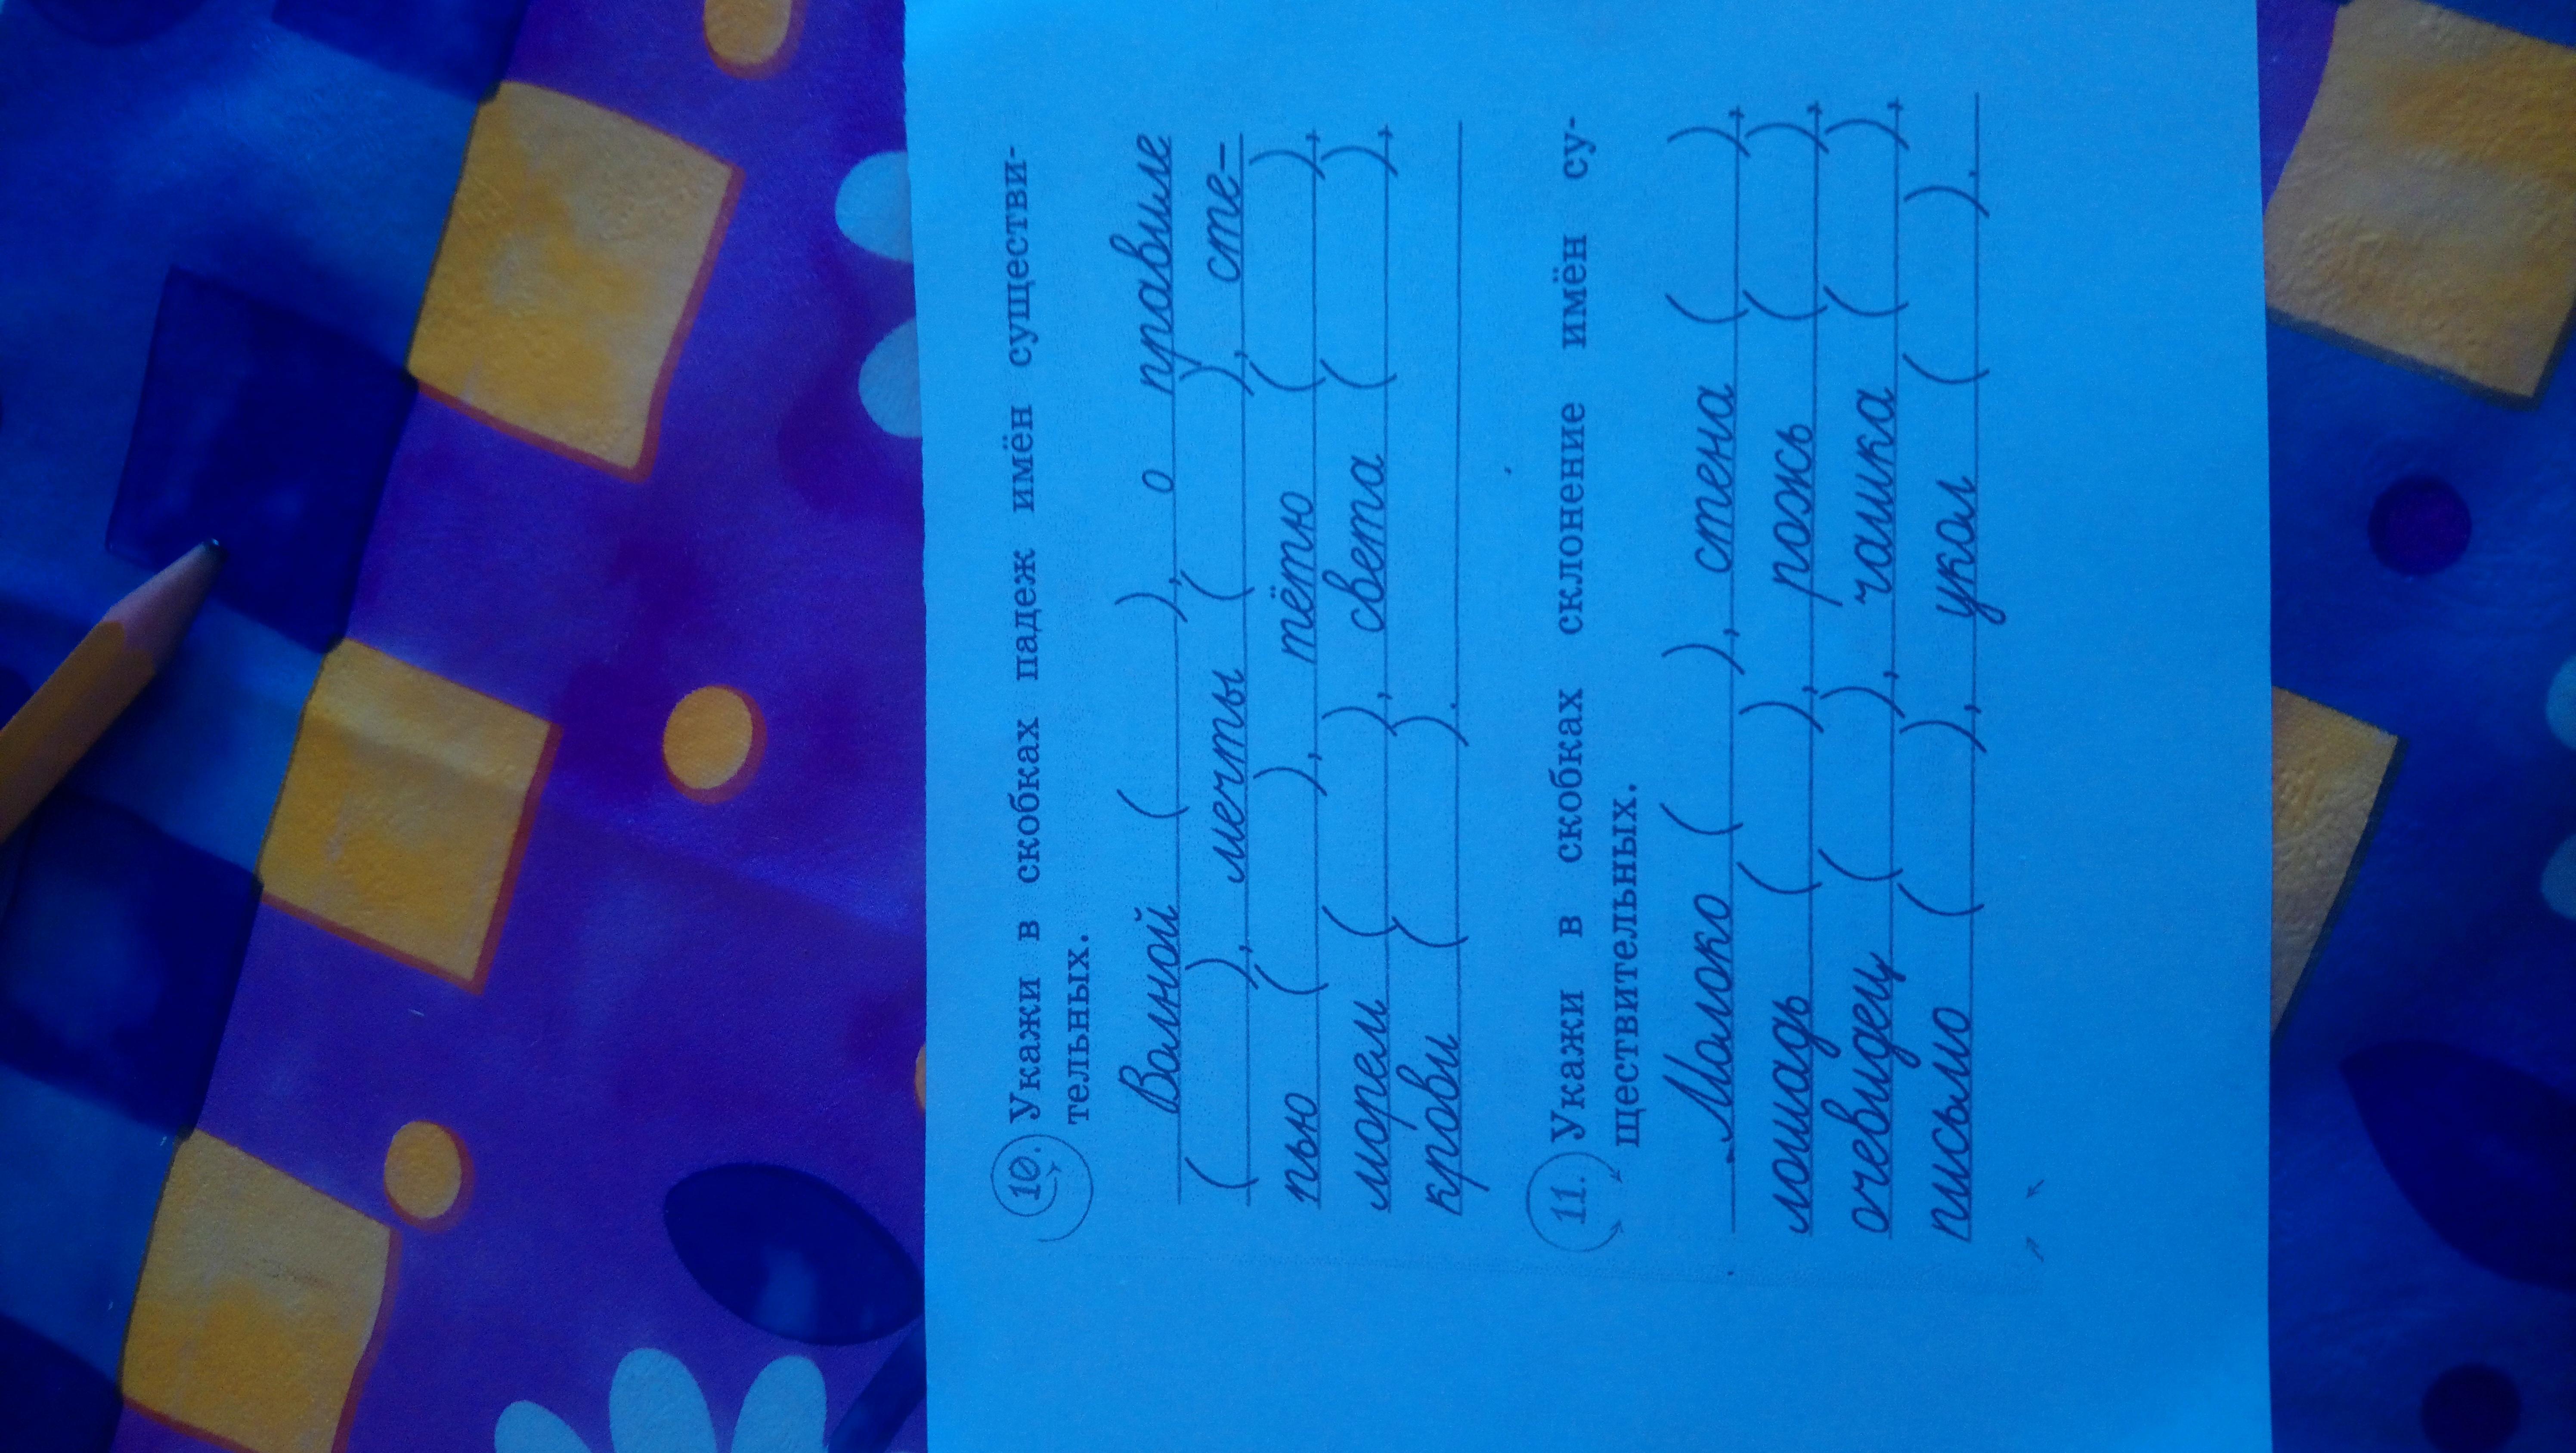 10. Укажи в скобках падеж имён существи-
тельных.
Волной ( ), о правиле
( ), мечты ( ), сте-
пью ( ), тётю ( ),
морем ( ), света ( ),
крови ( ).
11. Укажи в скобках склонение имён су-
ществительных.
Молоко ( ), стена ( ),
лошадь ( ), рожь ( ),
очевидец ( ), чашка ( ),
письмо ( ), укол ( ).